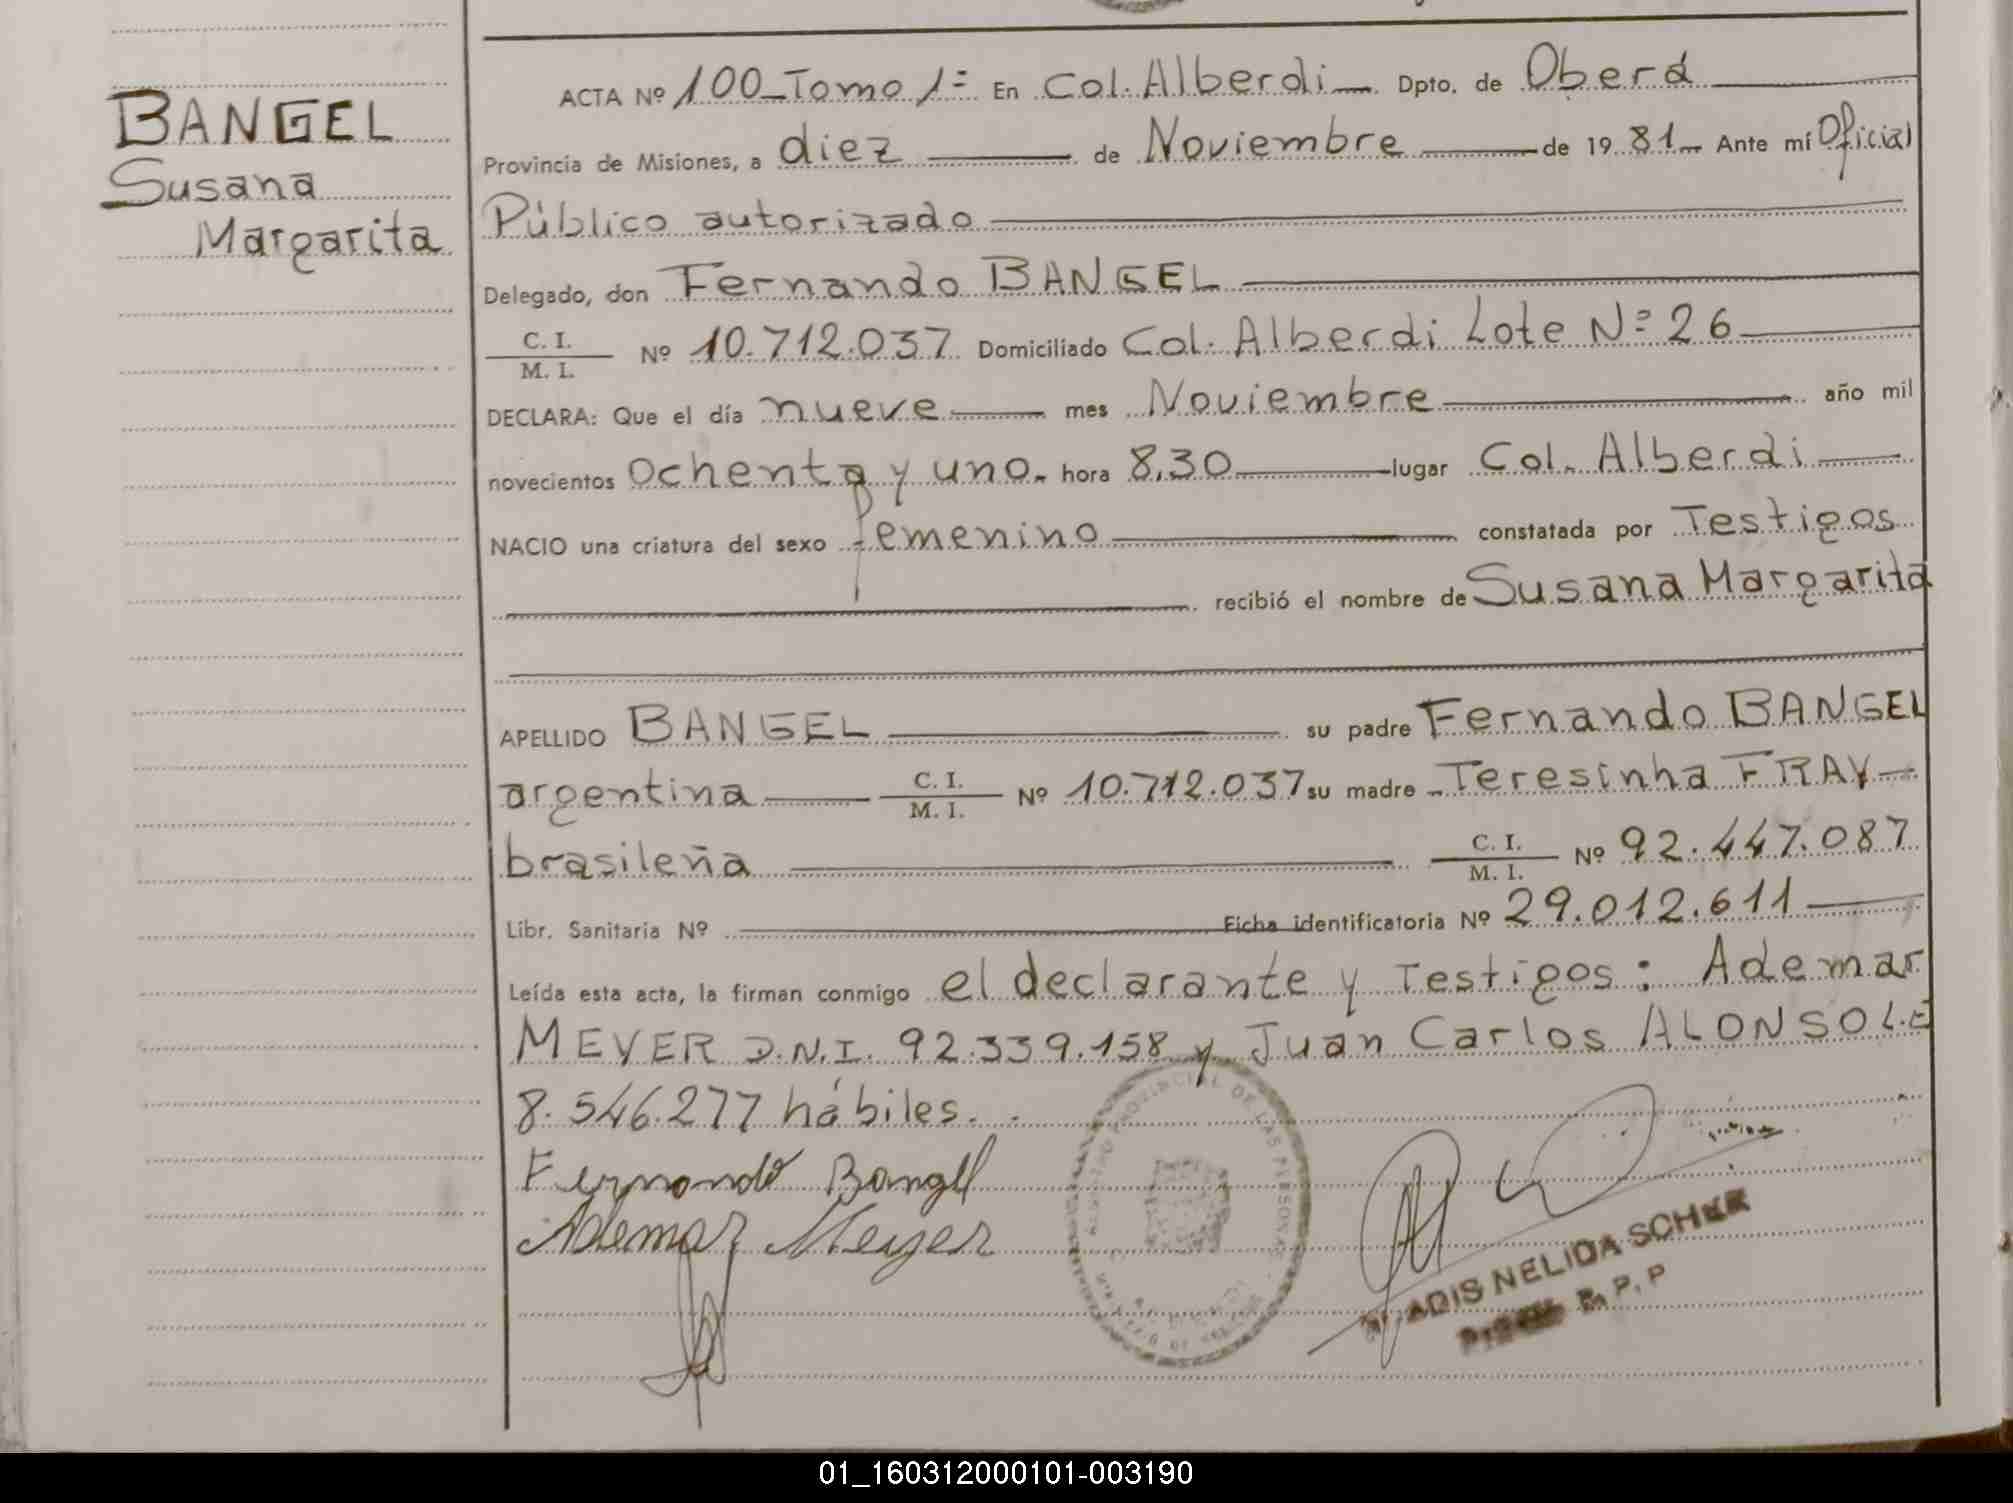 BANGEL
Susana
Margarita
ACTA Nº 100_Tomo 1º En Col. Alberdi Dpto. de Oberá
Provincia de Misiones, a diez de Noviembre de 1981 Ante mí Oficial
Público autorizado
Delegado, don Fernando BANGEL
C. I.
M. I. Nº 10.712.037 Domiciliado Col. Alberdi Lote Nº 26
DECLARA: Que el día nueve mes Noviembre año mil
novecientos ochenta y uno. hora 8,30 lugar Col. Alberdi
NACIO una criatura del sexo femenino constatada por Testigos
recibió el nombre de Susana Margarita
APELLIDO BANGEL su padre Fernando BANGEL
argentina C. I.
M. I. Nº 10.712.037 su madre Teresinha FRAY
brasileña C. I.
M. I. Nº 92.447.087
Libr. Sanitaria Nº Ficha identificatoria Nº 29.012.611
Leída esta acta, la firman conmigo el declarante y Testigos: Ademar
MEYER D.N.I. 92.339.158 y Juan Carlos ALONSO L.E
8.546.277 hábiles.
Fernando Bangel
Ademar Meyer
REGISTRO PROVINCIAL DE LAS PERSONAS
ADIS NELIDA
R. P. P
01_160312000101-003190